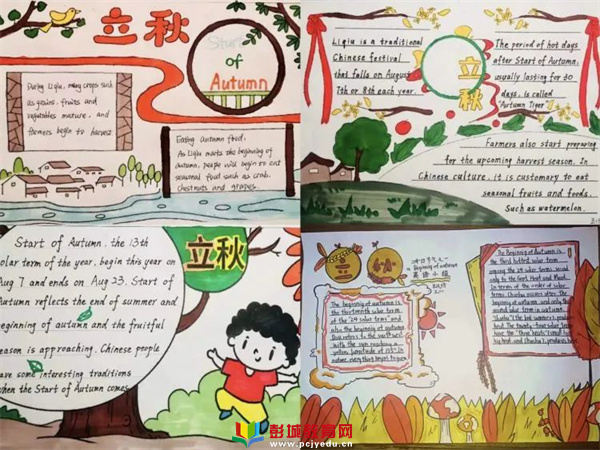 立秋
Start
of
Autumn
During Liqiu, many crops such
as grains, fruits and
vegetables mature, and
farmers begin to harvest
Easing autumn food,
As Liqiu marks the beginning of
autumn, people will begin to eat
seasonal food such as crab,
chestnuts and grapes.
Liqiu is a traditional
Chinese festival
that falls on August
7th or 8th each year.
立秋
The period of hot days
after Start of Autumn,
usually lasting for 30
days, is called
"Autumn Tiger"
Farmers also start preparing
for the upcoming harvest season. In
Chinese culture, it is customary to eat
seasonal fruits and foods,
Such as watermelon.
Start of Autumn, the 13th
olar term of the year, begin this year on
Aug 7 and ends on Aug 23. Start of
Autumn reflects the end of summer and
beginning of autumn and the fruitful
eason is approaching. Chinese people
ave some interesting traditions
when the Start of Autumn comes
立秋
立秋
Beginning of autumn
英语小报
The beginning of autumn is
the thirteenth solar term
of the "24 solar terms" and
the beginning of autumn
with the sun reaching
Beginning of Autumn is
solar term
among the 24 solar terms, second
only to the Great Heat and
In terms of the order of solar
terms,
autumn, and only the
second solar term in autumn.
彭城教育网
www.pcjyedu.cn